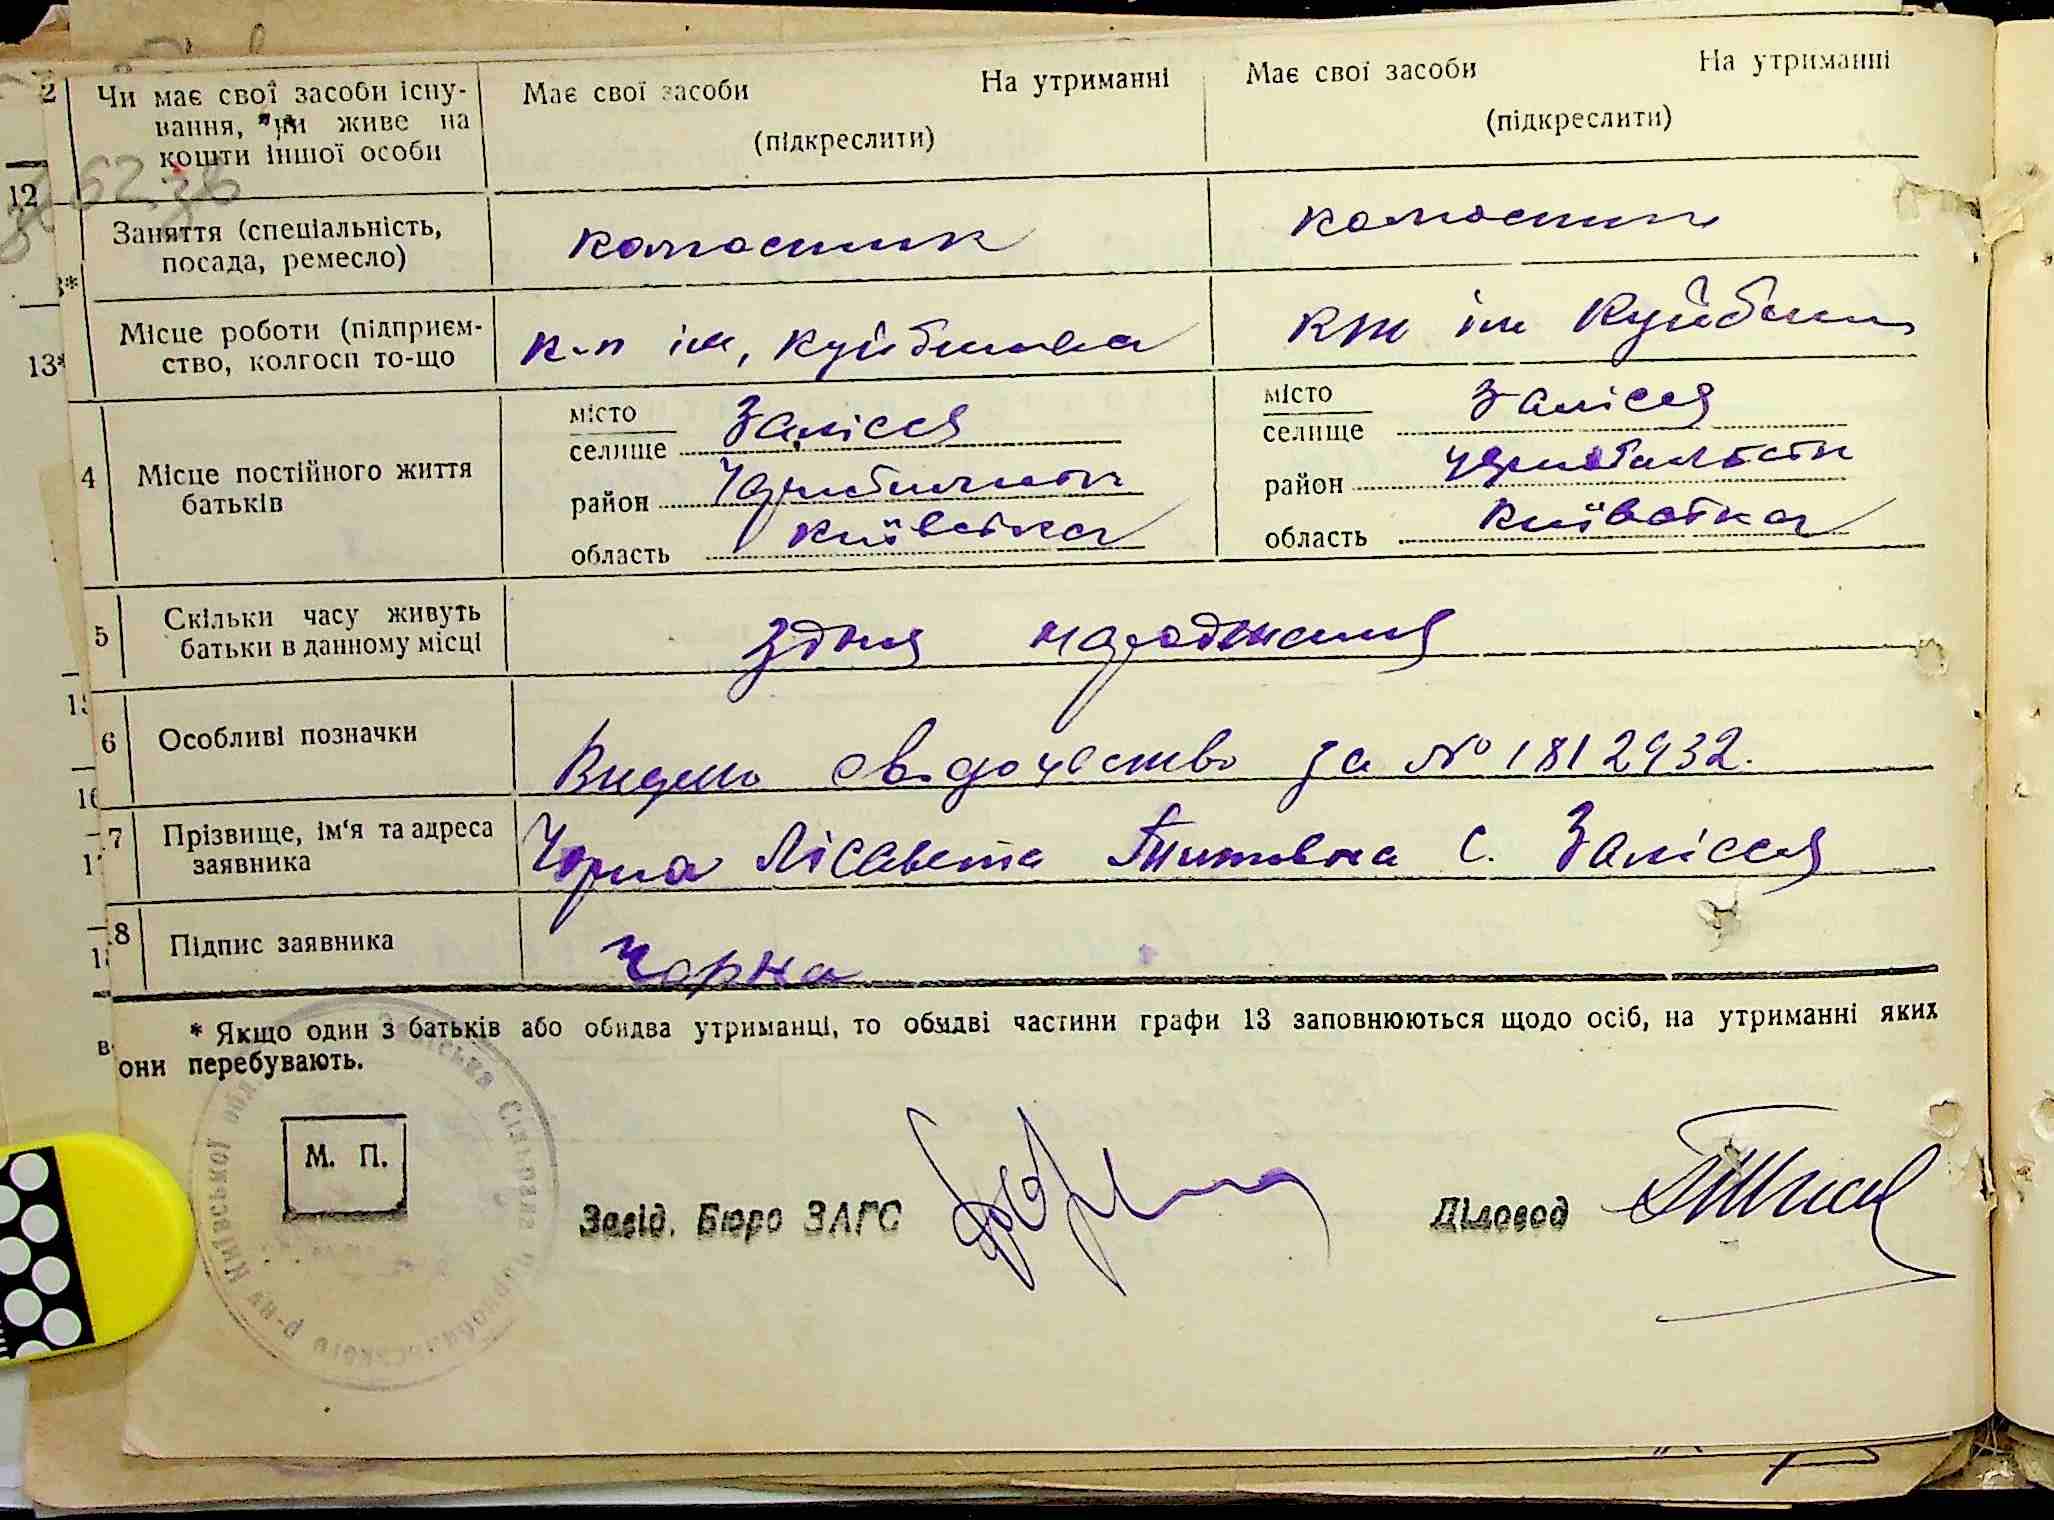 Чи має свої засоби існу-
вання, чи живе на
кошти іншої особи
Має свої засоби На утриманні
(підкреслити)
Має свої засоби На утриманні
(підкреслити)
12
Заняття (спеціальність,
посада, ремесло)
колгосник
колгосник
13*
Місце роботи (підприєм-
ство, колгосп то-що
к-п ім, Куйбишева
ім Куйбиш
4
Місце постійного життя
батьків
місто
селище Залісся
район
область Київська
місто
селище Залісся
район
область Київська
5
Скільки часу живуть
батьки в данному місці
з дня народження
6
Особливі позначки
Видано свідочество за № 1812932.
7
Прізвище, ім'я та адреса
заявника
Чорна Лісавета Титовна с. Залісся
8
Підпис заявника
Чорна
* Якщо один з батьків або обидва утриманці, то обидві частини графи 13 заповнюються щодо осіб, на утриманні яких
они перебувають.
М. П.
Завід. Бюро ЗАГС
Діловод
Заліська Сільрада Чорнобильського р-ну Київської обл.